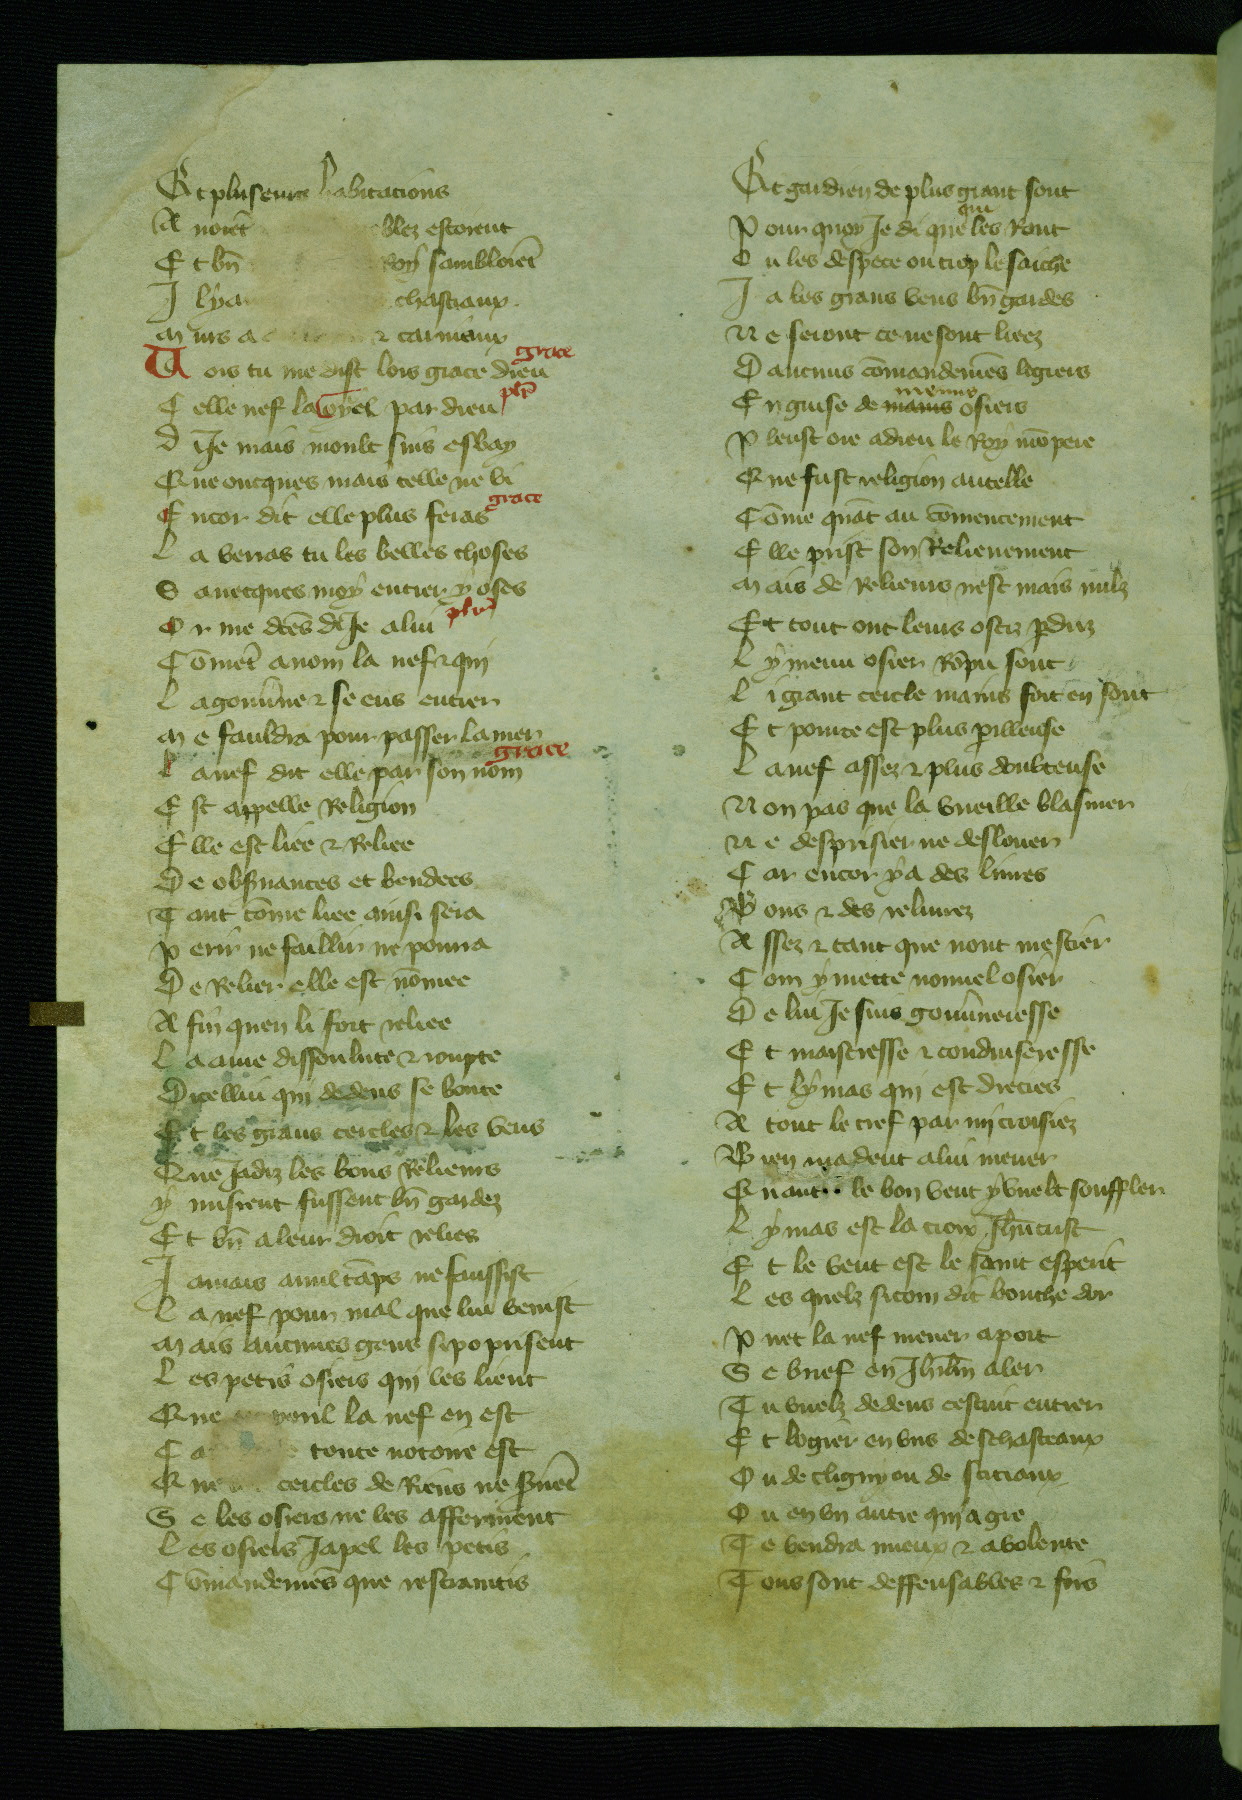 Et pluseurs habitacions
A noiēt blez estorent
Et bn̄ roy sambloiēt
Il y a chastiaux
Murs a & carneaux
Vois tu me dist lors grace dieu grace
Celle nef la oyel par dieu pel̄
Di Je mais moult suis esbay
Que oncques mais telle ne vi
Encor dit elle plus feras grace
La verras tu les belles choses
S auecques moy entrer y oses
Or me dcēs di Je a lui pel̄
Cōmēt a nom la nef & qui
La gouūne & se ens entrer
Me fauldra pour passer la mer
La nef dit elle par son nom grace
Est appelle Religion
Elle est liee & Reliee
De obs̄uances et bendees
Tant cōme liee ainsi sera
Perir ne faillir ne pourra
De Relier elle est nōmee
A fin quen li soit reliee
La ame dissoulute & roupte
Dicellui qui dedens se boute
Et les grans cercles & les vens
Que Jadiz les bons Relieurs
y misrent fussent bn̄ gardez
Et bn̄ a leur droit relies
Jamais a nul tāps ne faussist
La nef pour mal que lui venist
Mais aucunes gens si po prisent
Les petis osiers qui les lient
Que peril la nef en est
Ca toute notoire est
Que cercles de Riens ne s̄uēt
Se les osiers ne les afferment
Les osiers Japel les petis
Cōmandemēs que restraintis
Et gardien de plus grant sont
Pour quoy Je di que qui les Ront
Ou les despece ou trop le saiche
Ja les grans vens bn̄ gardes
Ne seront ce ne sont liees
Daucuns cōmandemēs legiers
En guise de mains menus osiers
Pleust ore a dieu le Roy mō pere
Que fust religion autelle
Cōme quāt au cōmencement
Elle prist son Relieuement
Mais de Relieurs nest mais nulz
Et tout ont leurs ostiz p̄duz
Ly menu osier Rōpu sont
Li grant cercle mains fort en sont
Et pource est plus p̄illeuse
La nef assez & plus doubteuse
Non pas que la vueille blasmer
Ne desprisier ne deslouer
Car encor y a des liures
Bons & des reliurez
Assez & tant que nont mestier
Com y mette nouuel osier
De lui Je suis gouūneresse
Et maistresse & conduiseresse
Et ly mas qui est drecies
A tout le tref par mi croisiez
Bien ma deut a lui mener
Quant le bon vent y vuelt souffler
Ly mas est la croix Jhūcrist
Et le vent est le saint esperit
Les quelz sicom dit bouche dor
Puet la nef mener a port
Se vuef en Jhrlm̄ aler
Tu vuelz dedens cestuit entrer
Et logier en vns des chasteaux
Ou de cligny ou de sictiaux
Ou en vn autre qui a gre
Te vendra mieux & a volente
Tous sont deffensables & fors